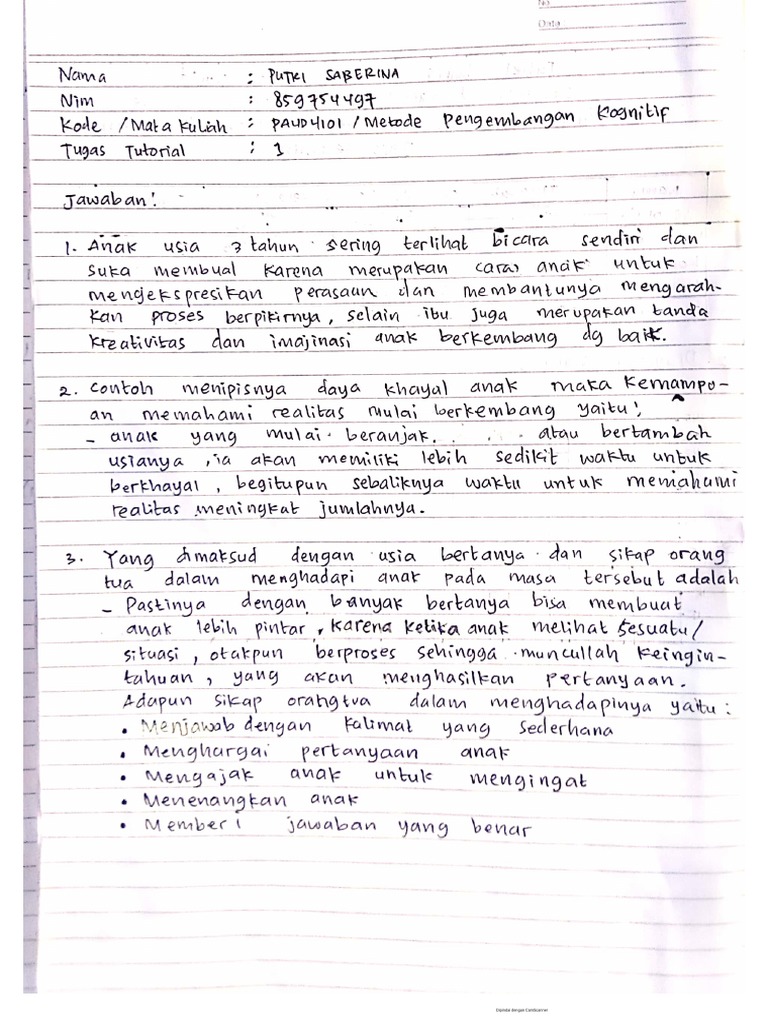 No
Date
Nama : PUTRI SABERINA
Nim : 859754497
Kode / Mata Kuliah : PAUD4101 / Metode Pengembangan Kognitif
Tugas Tutorial : 1
Jawaban!
1. Anak usia 3 tahun sering terlihat bicara sendiri dan
suka membual karena merupakan cara anak untuk
mengekspresikan perasaan dan membantunya mengarah-
kan proses berpikirnya, selain ibu juga merupakan tanda
kreativitas dan imajinasi anak berkembang dg baik.
2. Contoh menipisnya daya khayal anak maka kemampu-
an memahami realitas mulai berkembang yaitu!
- anak yang mulai beranjak. . . . atau bertambah
usianya, ia akan memiliki lebih sedikit waktu untuk
berkhayal, begitupun sebaliknya waktu untuk memahami
realitas meningkat jumlahnya.
3. Yang dimaksud dengan usia bertanya dan sikap orang
tua dalam menghadapi anak pada masa tersebut adalah
- Pastinya dengan banyak bertanya bisa membuat
anak lebih pintar, karena ketika anak melihat sesuatu/
situasi, otakpun berproses sehingga muncullah keingin-
tahuan, yang akan menghasilkan pertanyaan.
Adapun sikap orangtua dalam menghadapinya yaitu:
• Menjawab dengan kalimat yang sederhana
• Menghargai pertanyaan anak
• Mengajak anak untuk mengingat
• Menenangkan anak
• Memberi jawaban yang benar
Dipindai dengan CamScanner